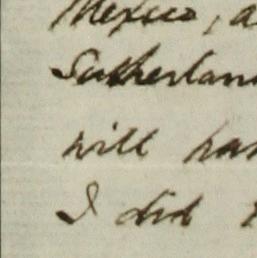 Mexico, a
Sutherlan
will ha
I did